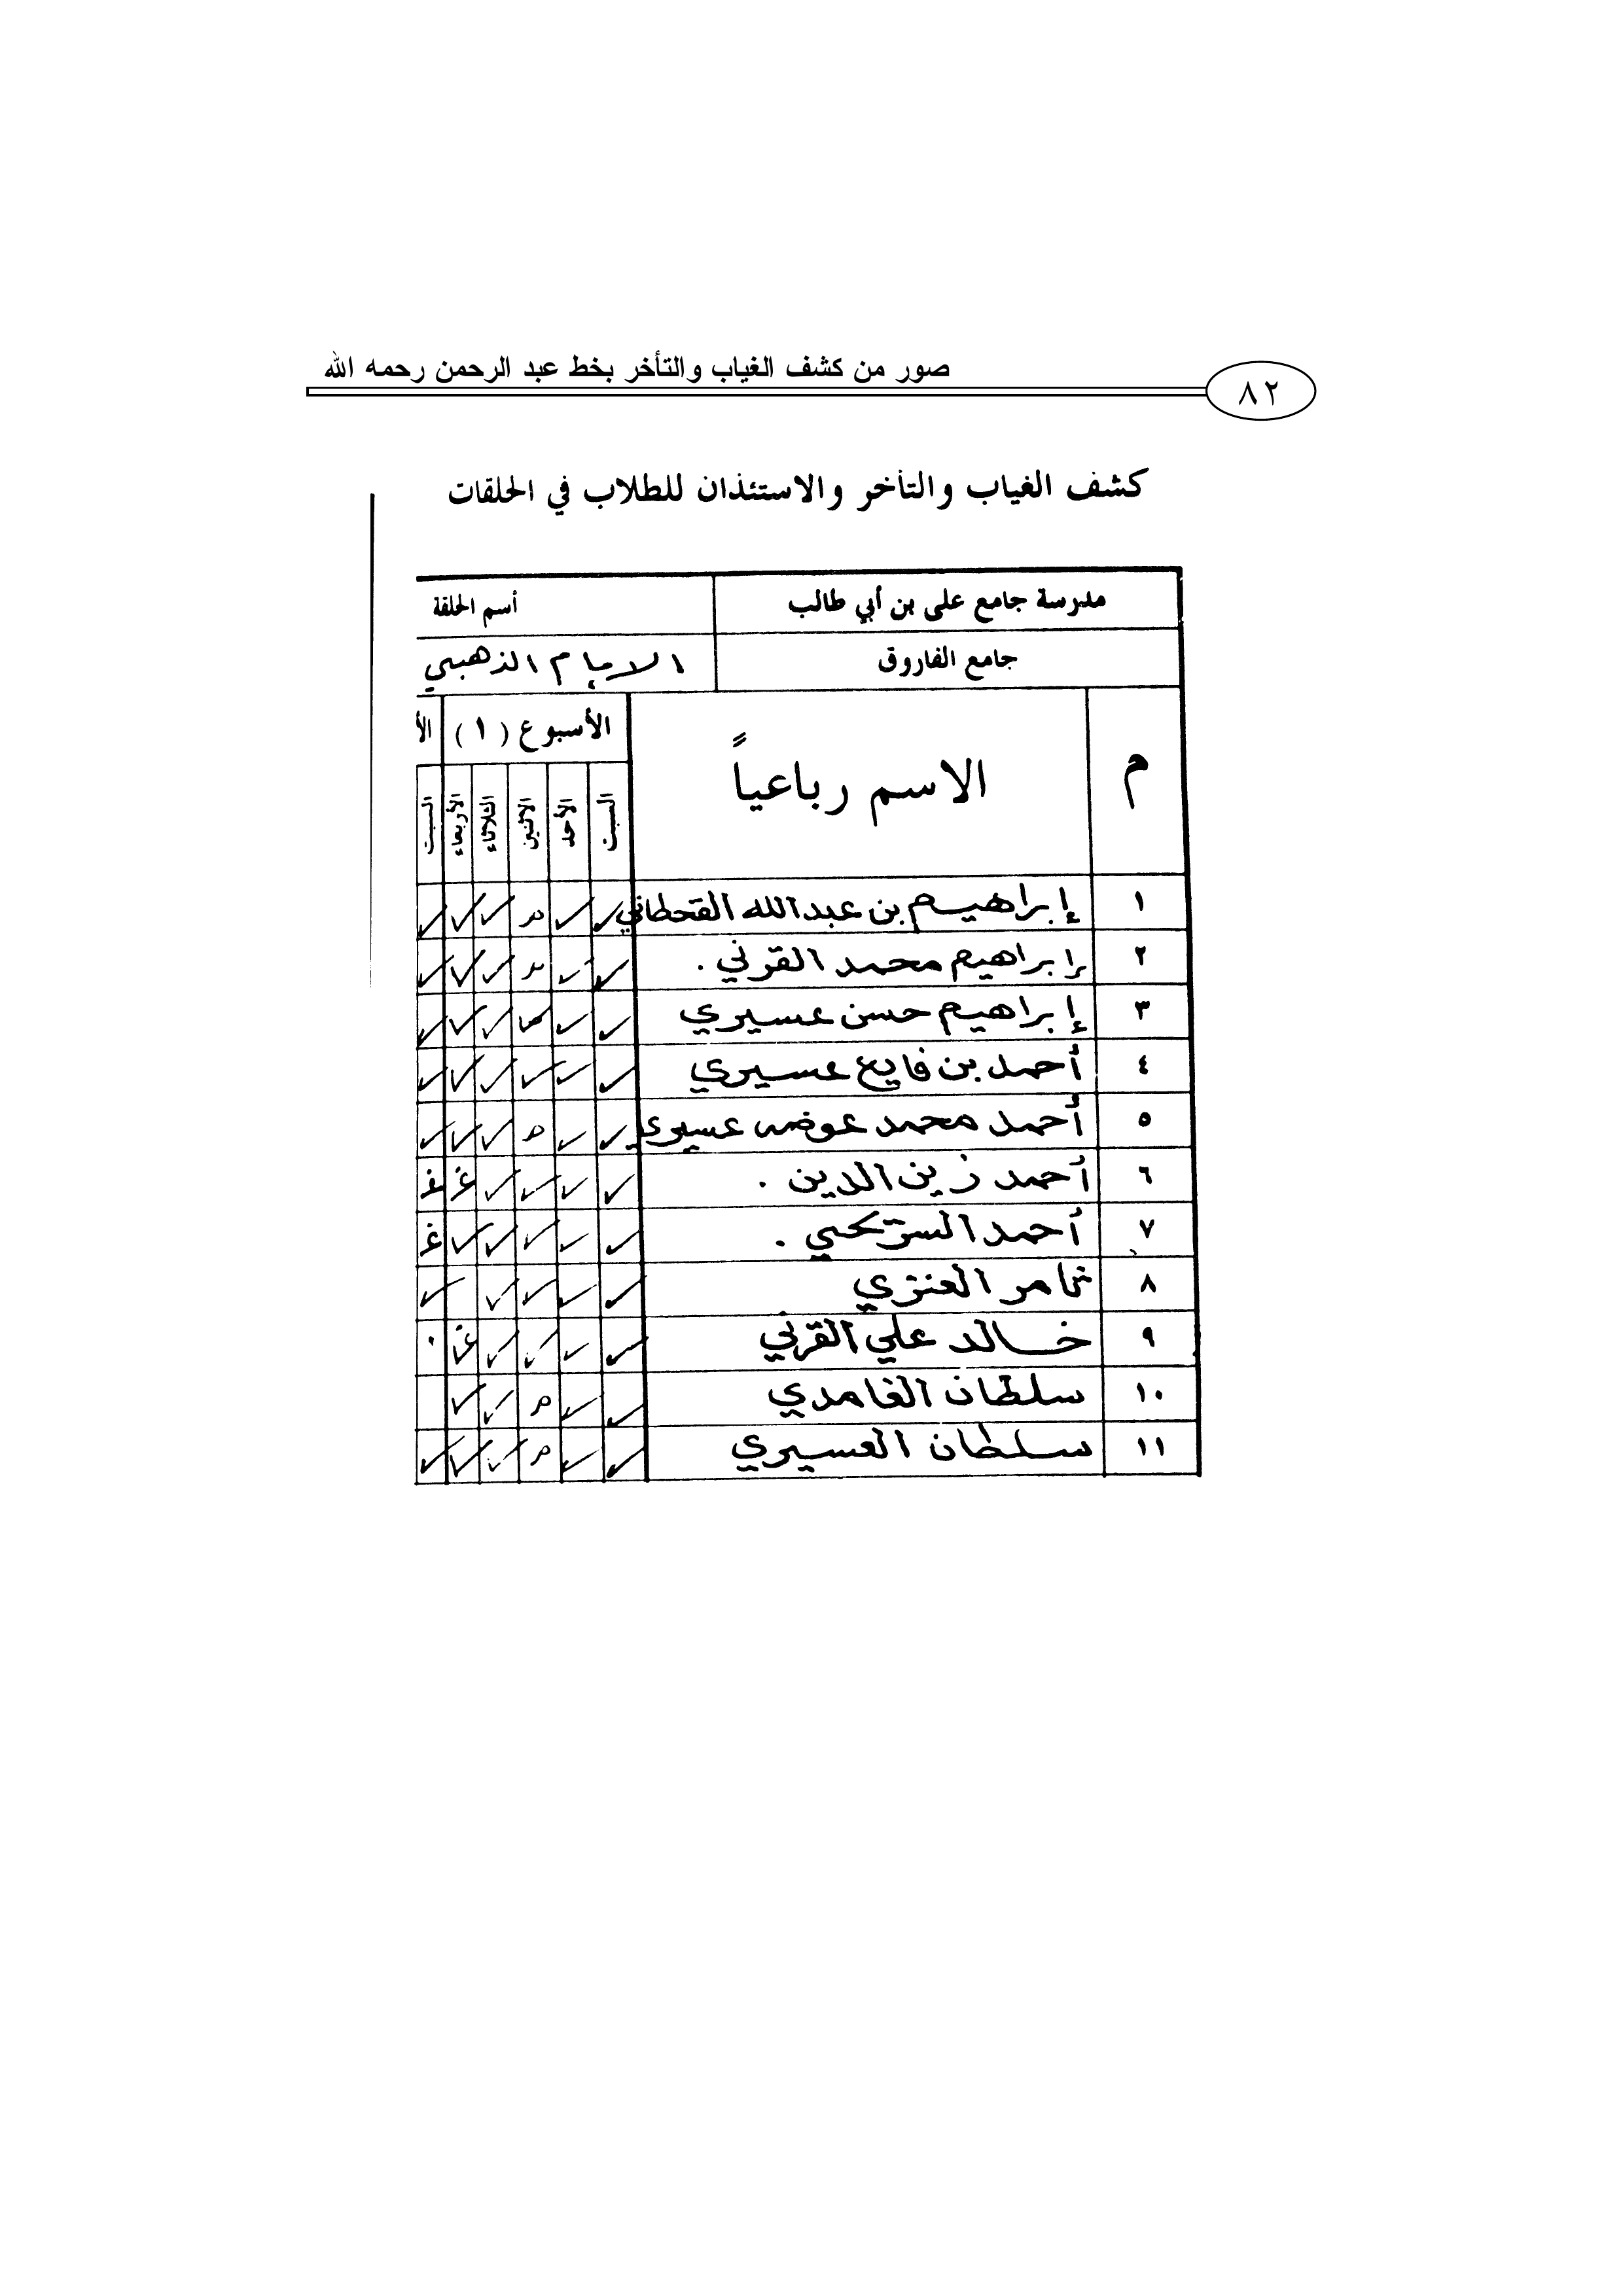 صور من كشف الغياب والتأخر بخط عبد الرحمن رحمه الله
٨٢
كشف الغياب والتأخر والاستئذان للطلاب في الحلقات
مدرسة جامع على بن أبي طالب أسم الحلقة
جامع الفاروق الإمام الذهبي
م الاسم رباعياً الأسبوع (١) الأ
السبت الأحد الاثنين الثلاثاء الأربعاء السبت
١ إبراهيم بن عبدالله القحطاني ✓ ✓ م ✓ ✓ ✓
٢ إبراهيم محمد القرني . ✓ ✓ م ✓ ✓ ✓
٣ إبراهيم حسن عسيري ✓ ✓ ✓ ✓ ✓
٤ أحمد بن فايع عسيري ✓ ✓ ✓ ✓ ✓ ✓
٥ أحمد محمد عوضه عسيري ✓ ✓ م ✓ ✓ ✓
٦ أحمد زين الدين . ✓ ✓ ✓ ✓ غ غ
٧ أحمد السريحي . ✓ ✓ ✓ ✓ ✓ غ
٨ ثامر العنزي ✓ ✓ ✓ ✓ ✓
٩ خالد علي القرني ✓ ✓ ✓ ✓ غ .
١٠ سلطان الغامدي ✓ ✓ م ✓ ✓
١١ سلطان العسيري ✓ ✓ م ✓ ✓ ✓